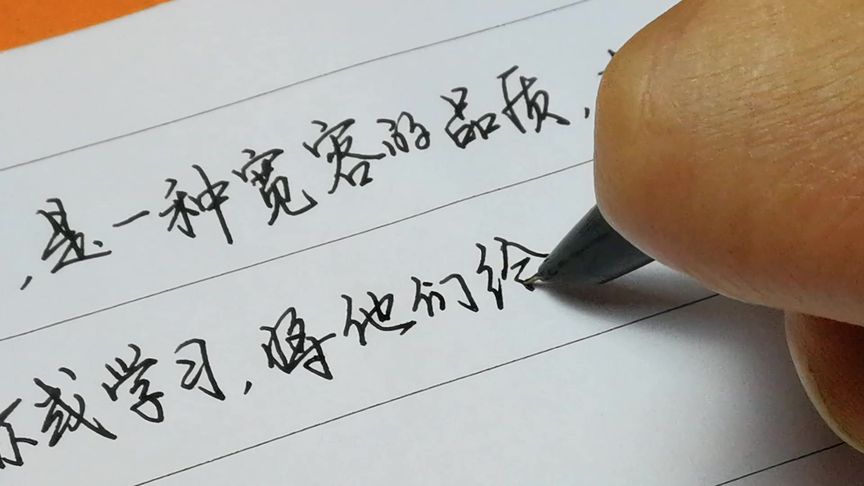 ，是一种宽容的品质，
或学习，将他们给